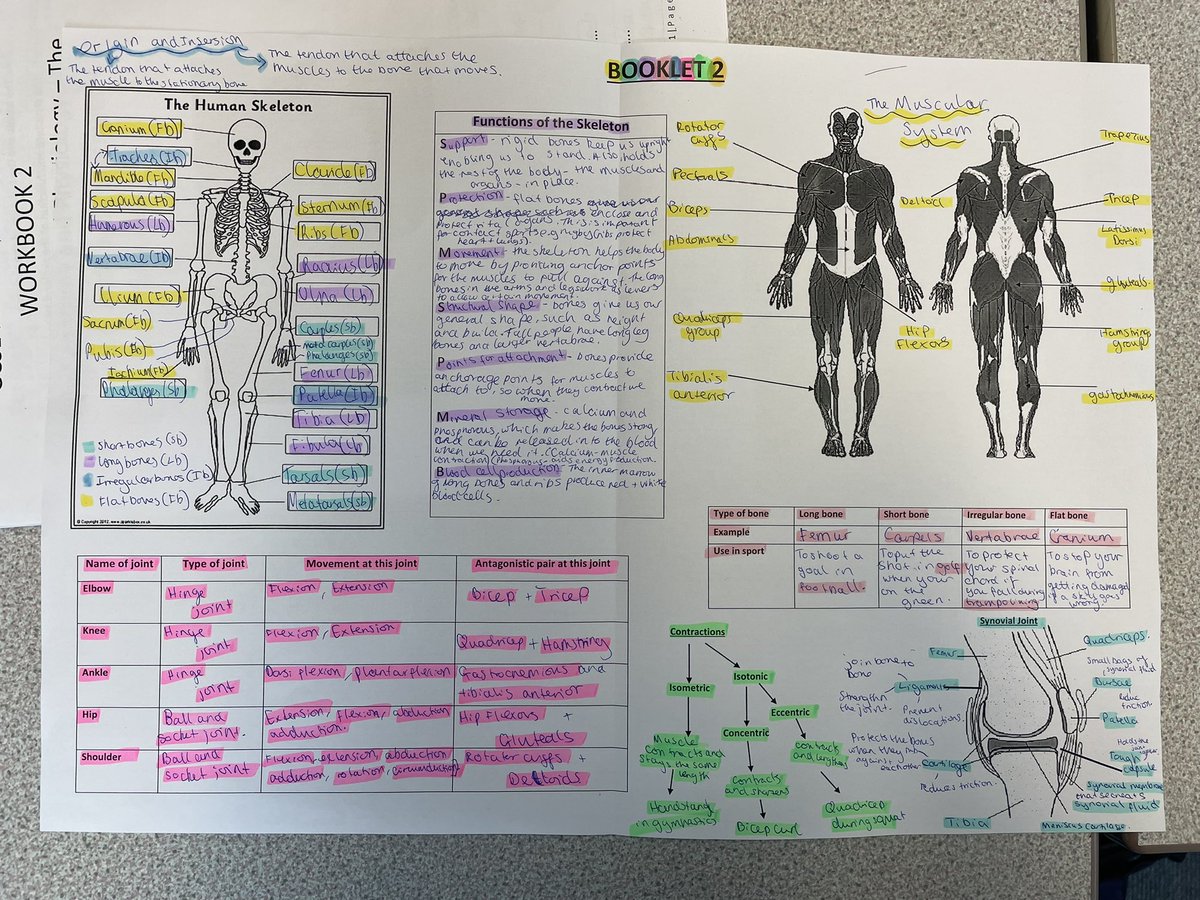 WORKBOOK 2
Origin and Insersion
The tendon that attaches
the muscle to the stationary bone
The tendon that attaches the
muscles to the bone that moves.
BOOKLET 2
The Human Skeleton
Cranium (Fb)
Mandible (Fb)
Scapula (Fb)
Humerous (Lb)
Vertabrae (Ib)
Ilium (Fb)
Sacrum (Fb)
Pubis (Fb)
Ischium (Fb)
Phalanges (Sb)
Sternum (Fb)
Ribs (Fb)
Radius (Lb)
Ulna (Lb)
Carples (Sb)
Metacarples (Sb)
Phalanges (Sb)
Femur (Lb)
Patella (Ib)
Tibia (Lb)
Fibula (Lb)
Tarsals (Sb)
Metatarsals (Sb)
Short bones (Sb)
Long bones (Lb)
Irregular bones (Ib)
Flat bones (Fb)
Functions of the Skeleton
Support - rigid bones keep us upright
enabling us to stand. Also holds
the rest of the body - the muscles and
organs - in place.
Protection - flat bones
enclose and
protect vital organs. This is important
for contact sports e.g rugby (ribs protect
heart + lungs).
Movement - the skeleton helps the body
to move by providing anchor points
for the muscles to pull against. The long
bones in the arms and legs work as levers
to allow certain movement.
Structural shape - bones give us our
general shape, such as height
and build. Tall people have long leg
bones and larger vertabrae.
Points for attachment - bones provide
anchorage points for muscles to
attach to, so when they contract we
move.
Mineral Storage - calcium and
phosphorous, which makes the bones strong
and can be released into the blood
when we need it. (Calcium - muscle
contraction) (Phosphorus - energy production.
Blood cell production The inner marrow
of long bones and ribs produce red + white
blood cells.
The Muscular
System
Rotator
cuffs
Pectorals
Biceps
Abdominals
Quadriceps
group
Tibialis
anterior
Deltoid
Hip
Flexors
Trapezius
Tricep
Latissimus
Dorsi
gluteals
Hamstrings
group
Type of bone Long bone Short bone Irregular bone Flat bone
Example Femur Carpels Vertabrae Cranium
Use in sport
To shoot a
goal in
football.
To put the
shot in golf
when your
on the
green.
To protect
your spinal
chord if
you fall during
trampolining
To stop your
brain from
getting damaged
if a skill goes
wrong.
Name of joint Type of joint Movement at this joint Antagonistic pair at this joint
Elbow Hinge joint Flexion, Extension Bicep + Tricep
Knee Hinge joint Flexion, Extension Quadricep + Hamstring
Ankle Hinge joint Dorsi flexion, plantar flexion Gastrocnemious and
tibialis anterior
Hip Ball and socket joint. Extension, Flexion, abduction
adduction. Hip Flexors + Gluteals
Shoulder Ball and socket joint Flexion, extension, abduction
adduction, rotation, circumduction Rotater cuffs +
Deltoids
Contractions
Isometric
Isotonic
Eccentric
Concentric
Muscle
contracts and
stays the same
length
Contracts
and shortens
contracts
and lengthens
Handstand
in gymnastics
Bicep curl
Quadricep
during squat
Synovial Joint
Femur
join bone to
bone
Ligaments
Strengthen
the joint.
Prevent
dislocations.
Protects the bones
when they rub
against eachother
Cartilage
reduces friction.
Tibia
Quadriceps.
Small bags of
synovial fluid
Bursae
reduce
friction.
Patella
Tough
capsule
Synovial membrane
that secreats
synovial fluid
Meniscus cartilage.